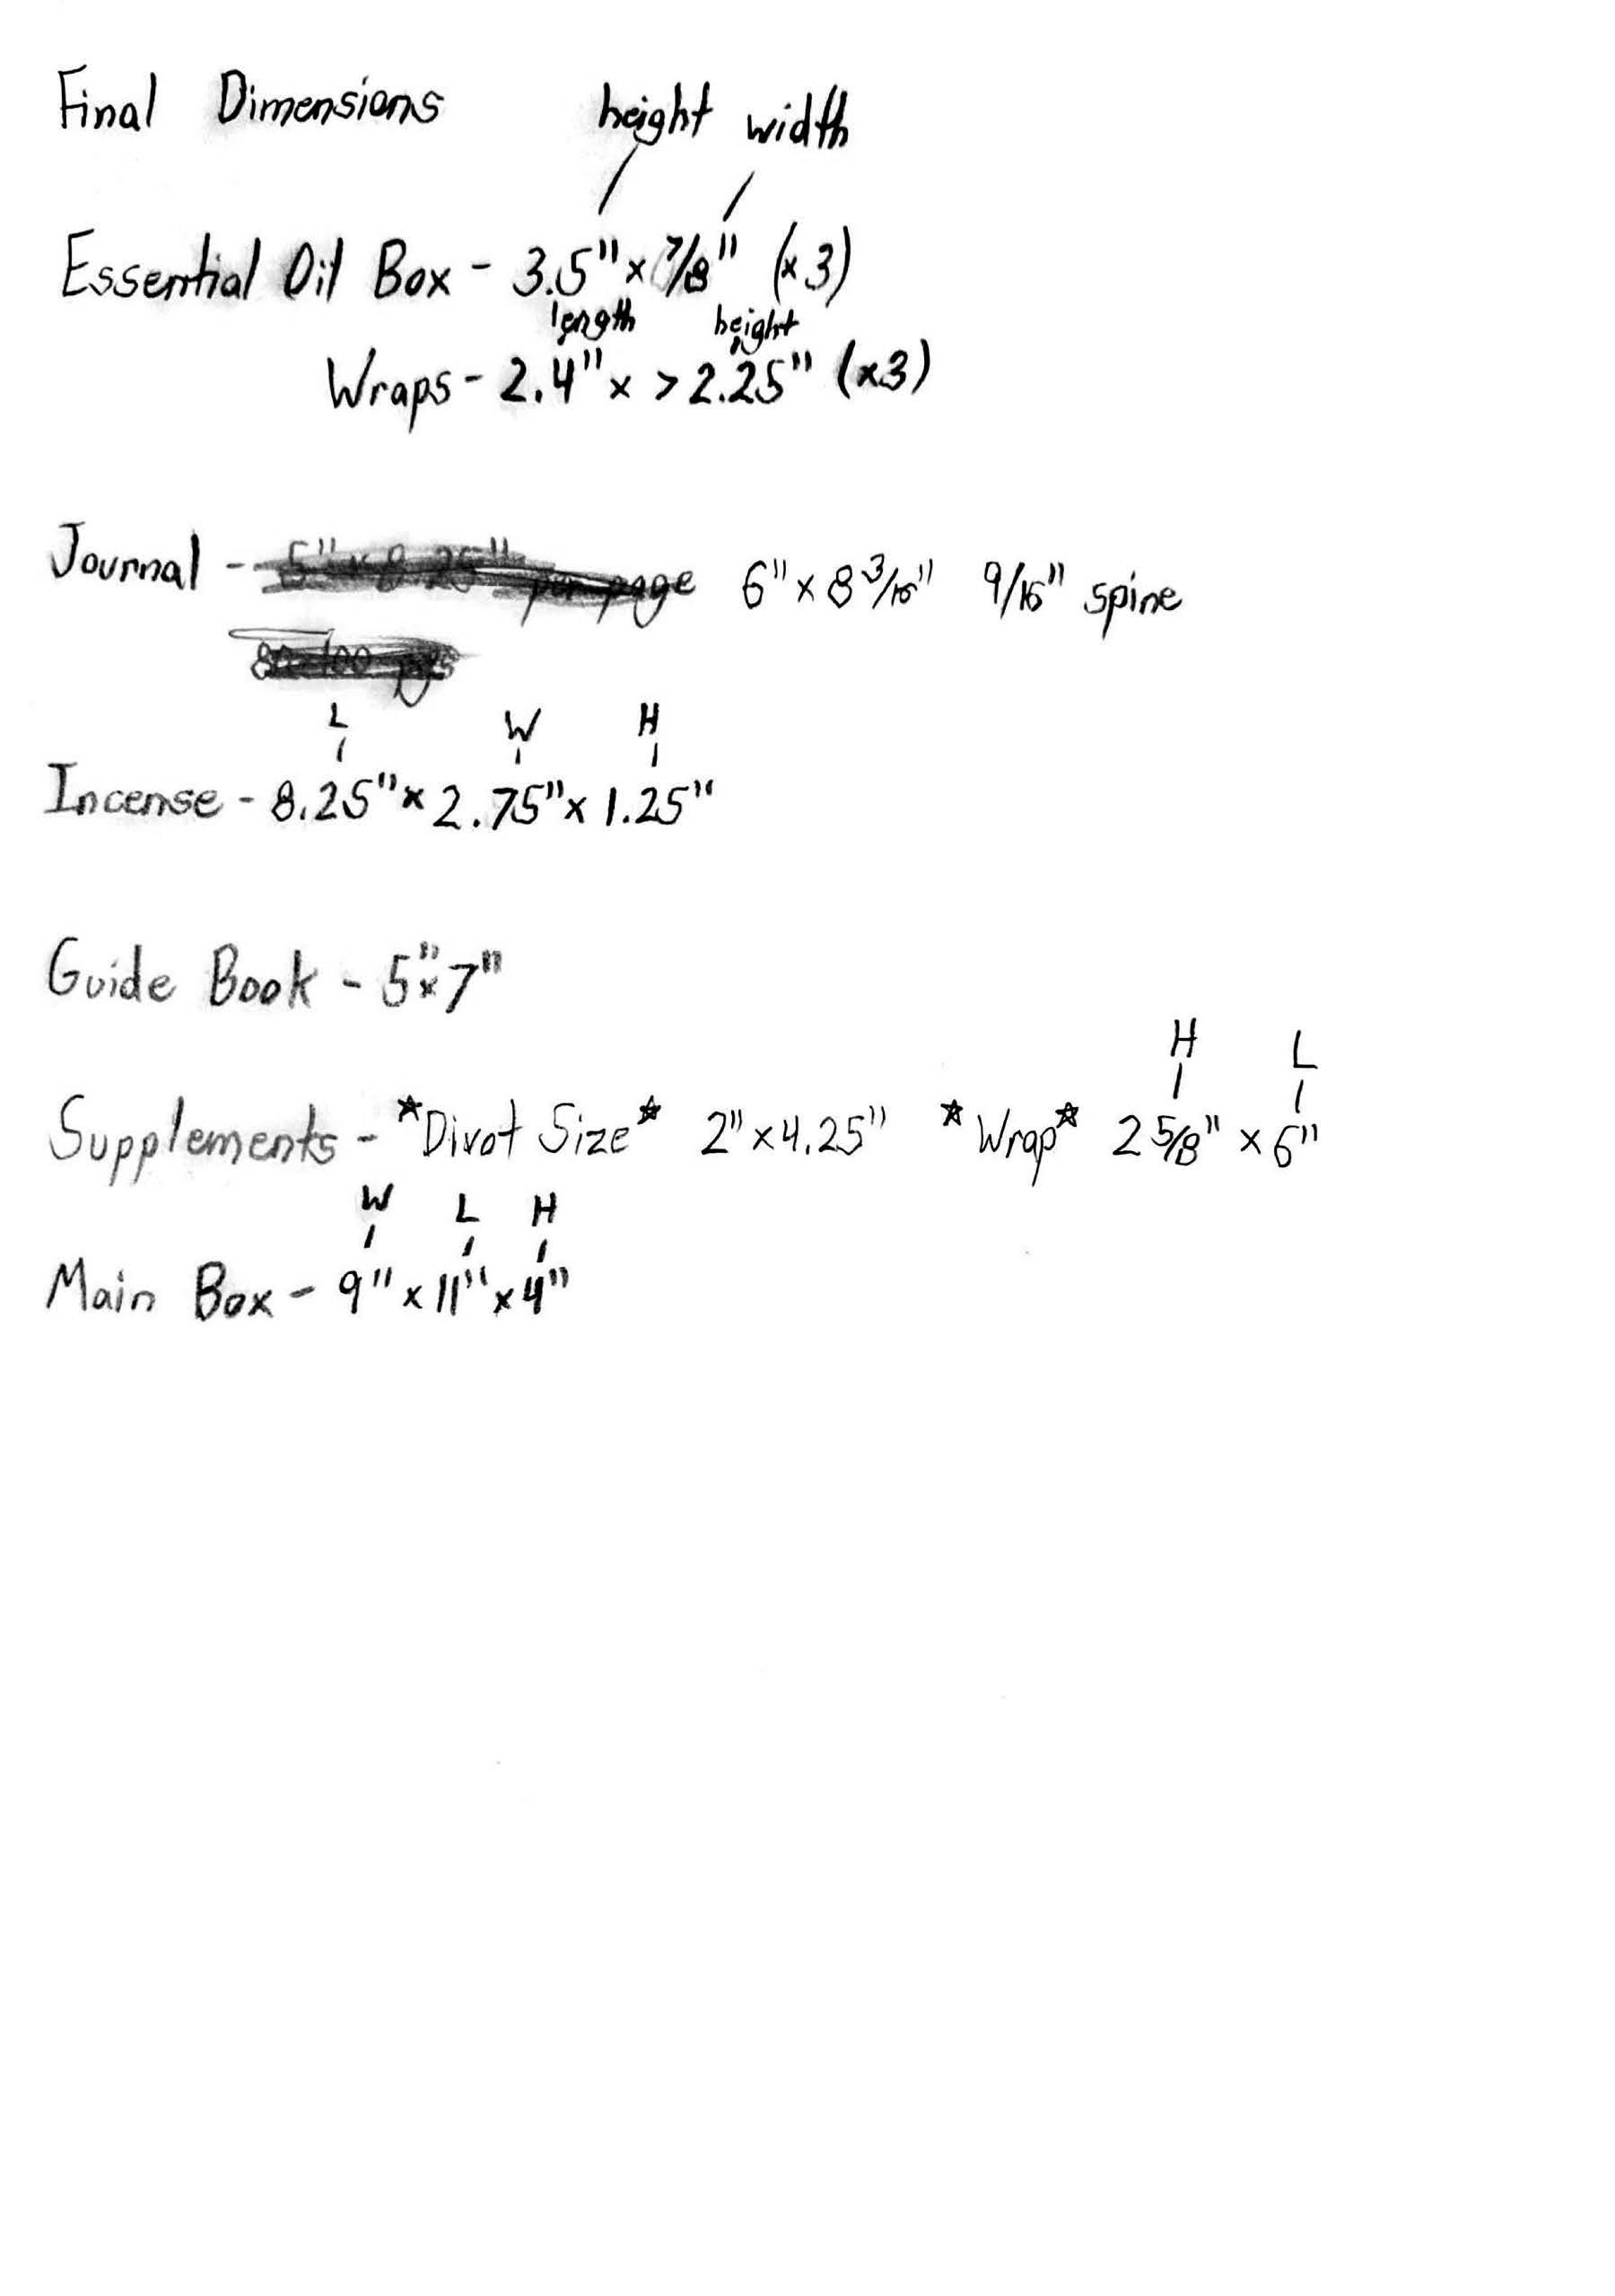 Final Dimensions
height width
Essential Oil Box - 3.5" x 7/8" (x3)
length height
Wraps - 2.4" x > 2.25" (x3)
Journal - 5" x 8.25" per page 6" x 8 3/16" 9/16" spine
L W H
Incense - 8.25" x 2.75" x 1.25"
Guide Book - 5" x 7"
H L
Supplements - *Divot Size* 2" x 4.25" *Wrap* 2 5/8" x 6"
W L H
Main Box - 9" x 11" x 4"